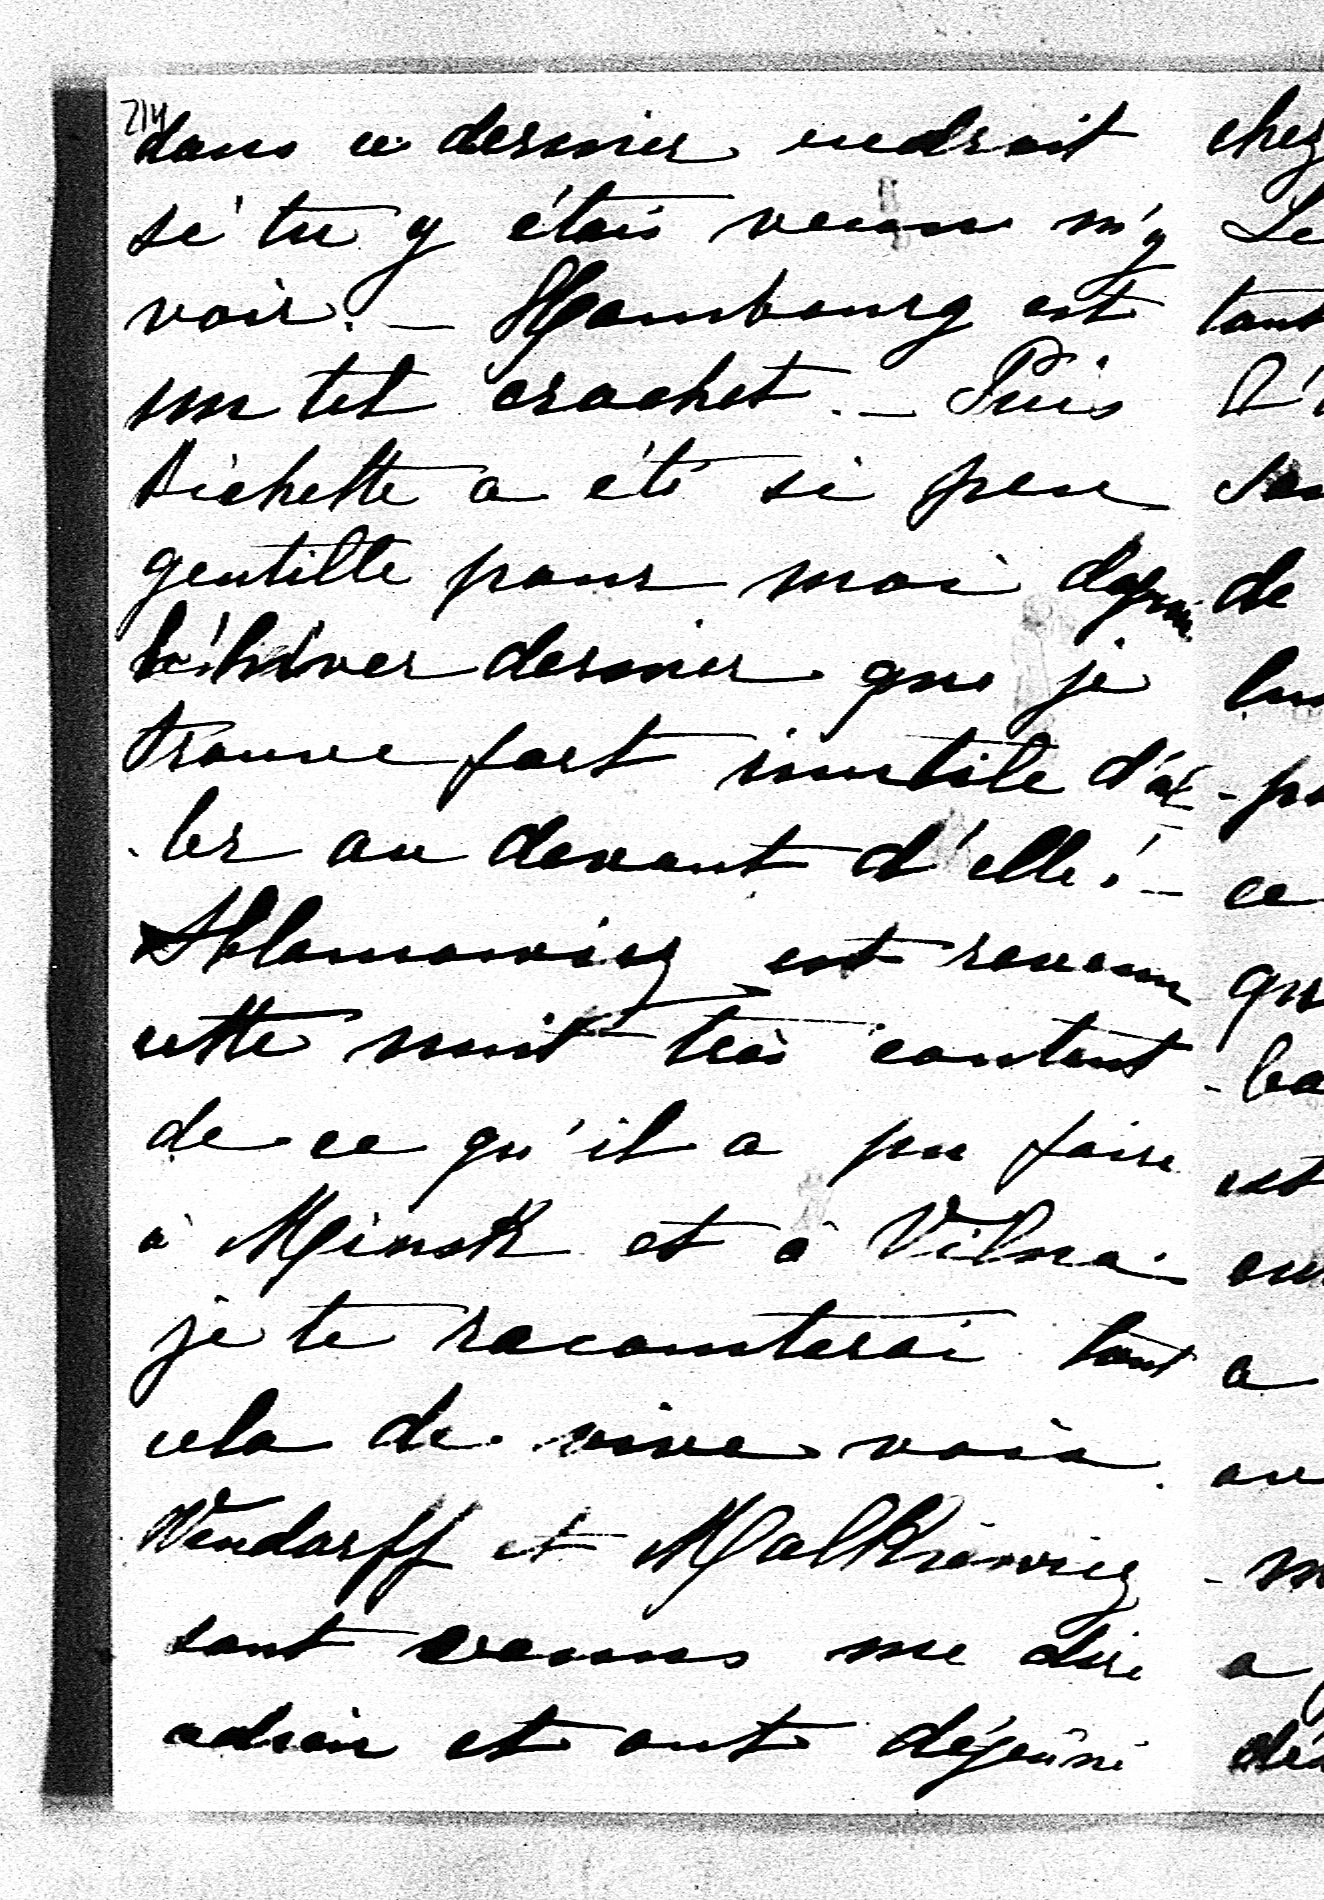 214
dans ce dernier endroit
si tu y étais venu m'y
voir. — Hambourg est
un tel crochet. — Puis
Bichette a été si peu
gentille pour moi depuis
l'hiver dernier que je
trouve fort inutile d'al-
-ler au devant d'elle! —
est revenu
cette nuit très content
de ce qu'il a pu faire
à Minsk et à Vilna.
je te raconterai tout
cela de vive voix.
Wendorff et Malkiewicz
sont venus me dire
adieu et ont déjeûné
chez
de
ce
a
a